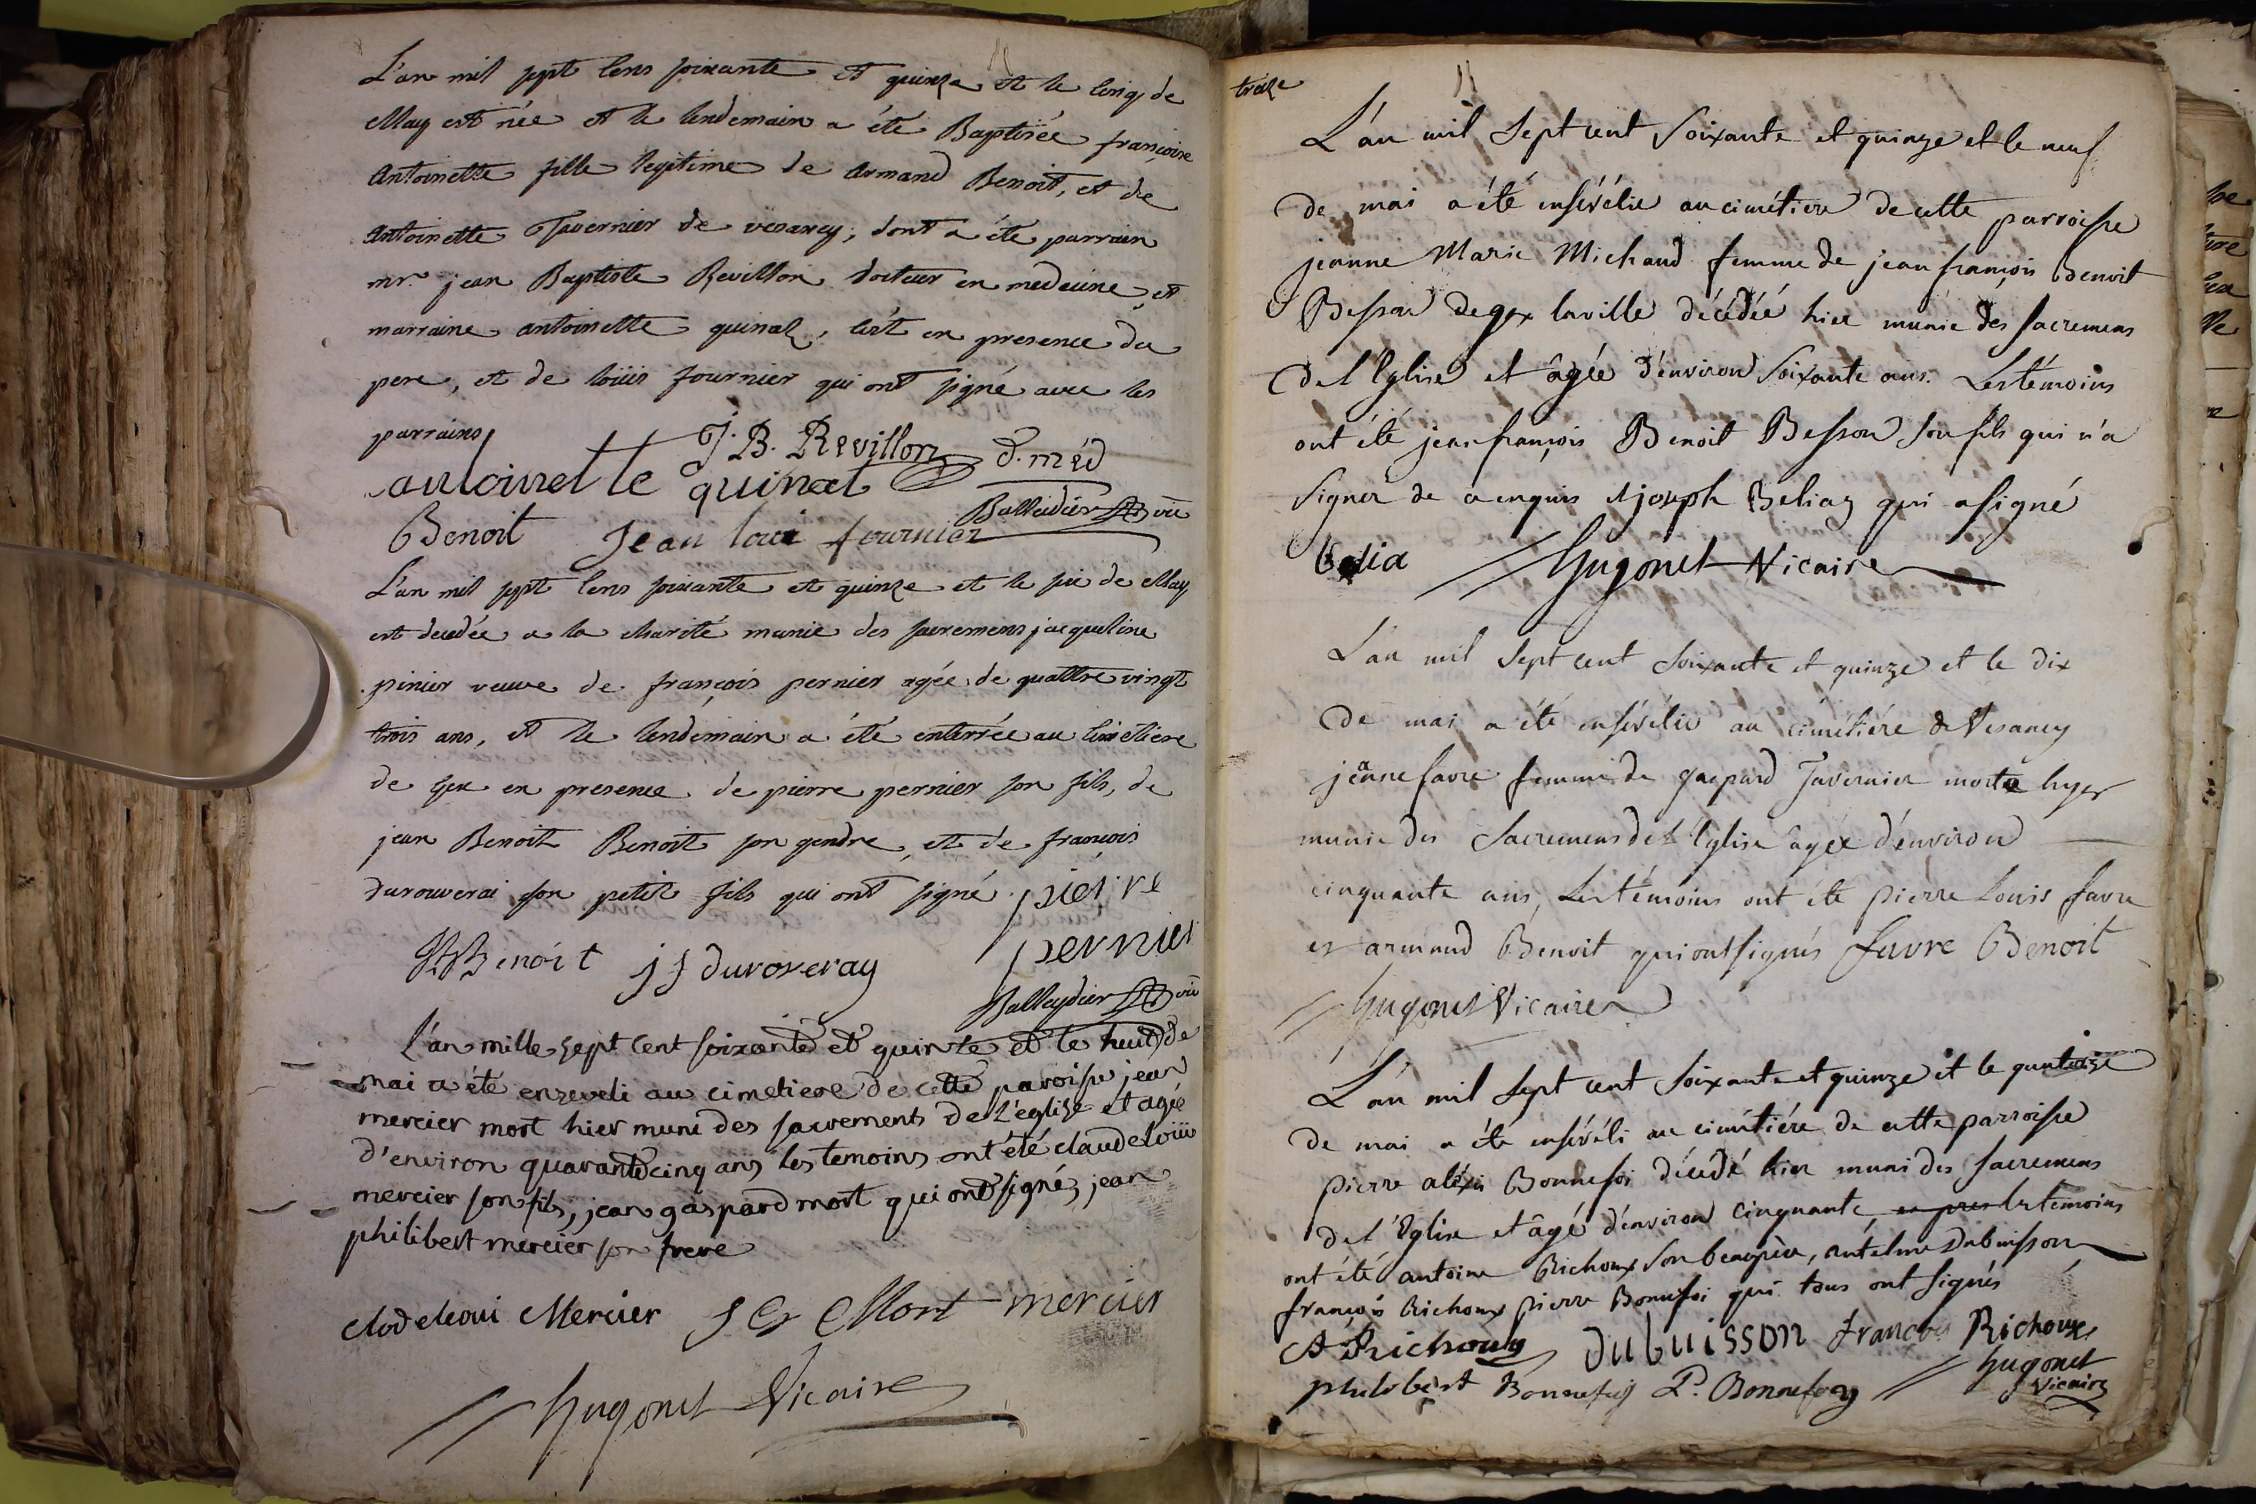 L'an mil sept cens soixante et quinze et le cinq de
May est née et le lendemain a été Baptisée françoise
Antoinette fille legitime de Armand Benoit, et de
Antoinette Tavernier de vesancy, dont a été parrain
mr. jean Baptiste Revillon docteur en medecine, et
marraine antoinette quinat, c'est en presence du
pere, et de loüis fournier qui ont signé avec les
parrains
J. B. Revillon d. méd
antoinet te quinat
Balleidier vic
Benoit Jean loui fournier
L'an mil sept cens soixante et quinze et le six de May
est decedée a la charité munie des sacremens jacqueline
pinier veuve de françois pernier agée de quattre vingt
trois ans, et le lendemain a été enterrée au cimetiere
de Gex en presence de pierre pernier son fils, de
jean Benoit Benoit son gendre, et de françois
durouverai son petit fils qui ont signé. pierre
pernier
Benoit j f duroveray
Balleydier vic
L'an mille sept cent soixante et quinze et le huit de
mai a été enseveli au cimetiere de cette paroisse jean
mercier mort hier muni des sacrements de l'eglise et agé
d'environ quarante cinq ans les temoins ont été claude loüis
mercier son fils, jean gaspard mort qui ont signé, jean
philibert mercier son frere
clode loui Mercier J G Mort mercier
Hugonet Vicaire
treize
L'an mil sept cent soixante et quinze et le neuf
de mai a été ensévélie au cimétiere de cette parroisse
jeanne Marie Michaud femme de jean françois Benoit
Besson de gex la ville décédée hier munie des sacremens
de l'Eglise et âgée d'environ soixante ans. Les témoins
ont été jean françois Benoit Besson son fils qui n'a
signer de ce enquis et joseph Beliaz qui a signé
Belia Hugonet Vicaire
L'an mil sept cent soixante et quinze et le dix
de mai a été ensévélie au cimétiére de Vesancy
jeanne favre femme de gaspard Tavernier morte hyer
munie des sacremens de l'Eglise agée d'environ
cinquante ans, Les témoins ont été pierre Louis favre
et armand Benoit qui ont signés favre Benoit
Hugonet Vicaire
L'an mil sept cent soixante et quinze et le quatorze
de mai a été ensévéli au cimétiére de cette parroisse
pierre aléxis Bonnefoi décédé hier muni des sacremens
de l'Eglise et âgé d'environ cinquante les temoins
ont été antoine Richoux son beaupère, antelme Dubuisson
françois Richoux pierre Bonnefoi qui tous ont signés
A Richoux dubuisson francois Richoux
philibert Bonnefoy P. Bonnefoy Hugonet
Vicaire